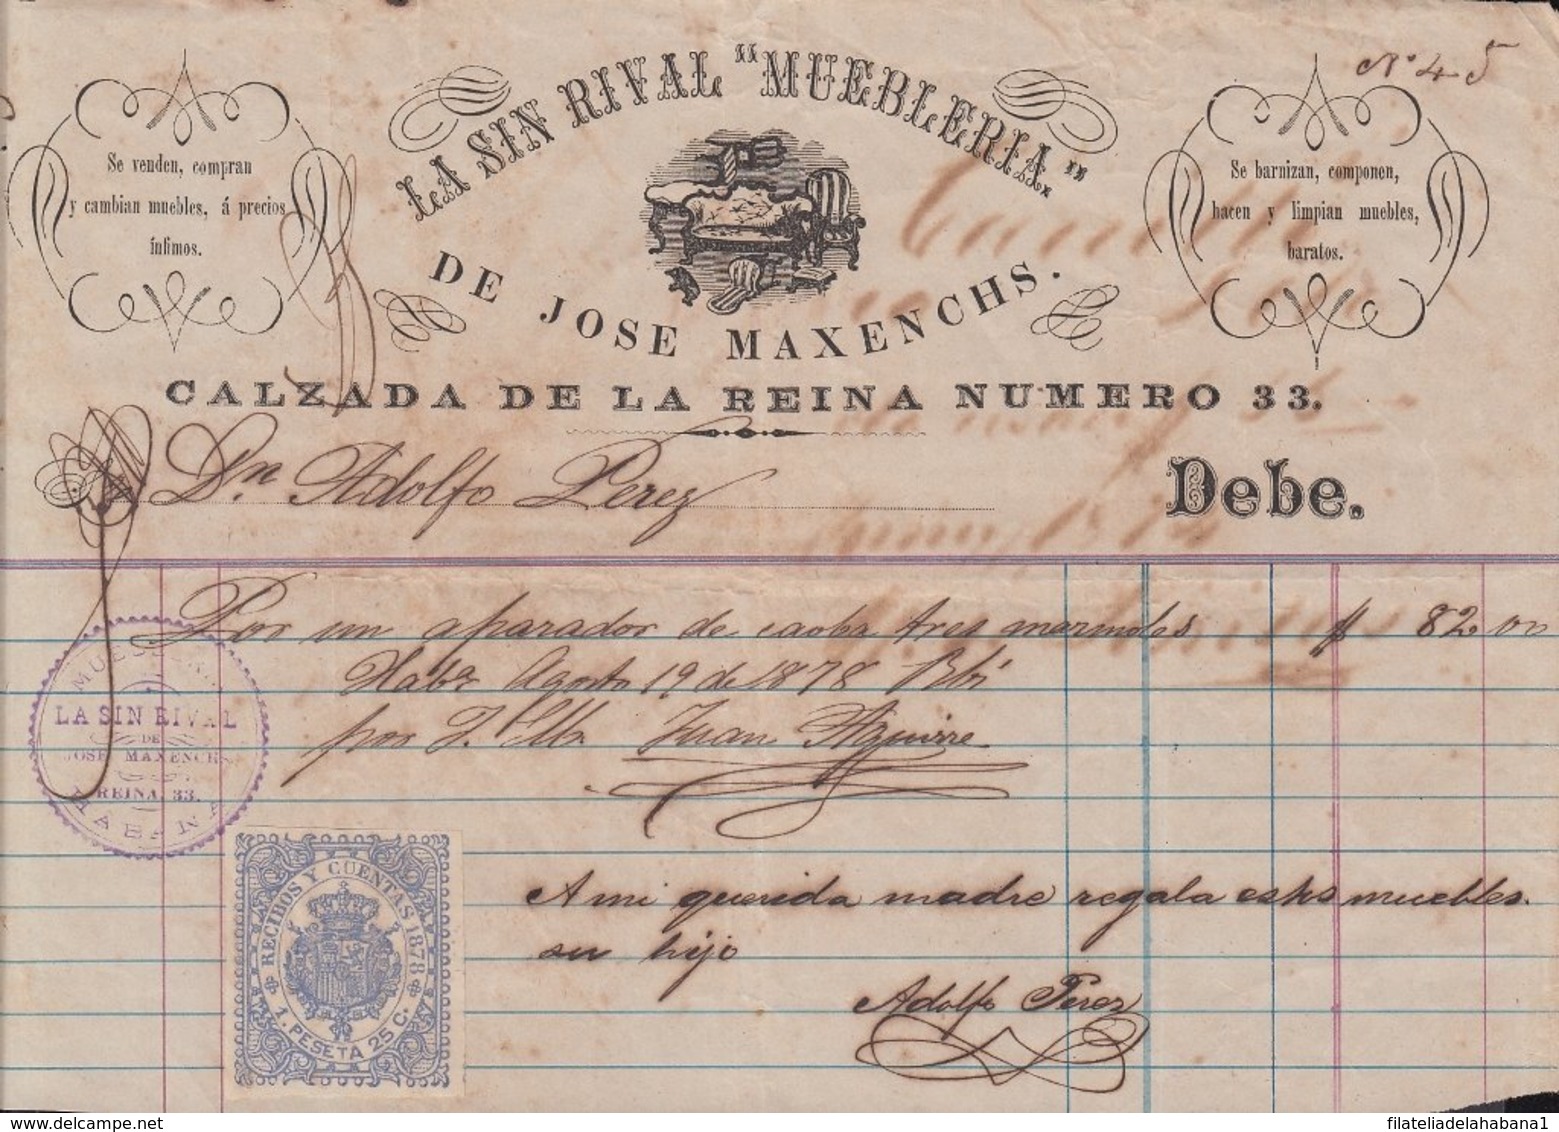 Nº 45
LA SIN RIVAL "MUEBLERIA."
DE JOSE MAXENCHS.
Se venden, compran
y cambian muebles, á precios
ínfimos.
Se barnizan, componen,
hacen y limpian muebles,
baratos.
CALZADA DE LA REINA NUMERO 33.
Dn Adolfo Perez
Debe.
Por un aparador de caoba tres marmoles $ 82 00
Habª Agosto 19 de 1878 Rbi
por J. Juan Aguirre
MUEBLERIA
LA SIN RIVAL
DE
JOSE MAXENCHS
REINA 33.
HABANA
RECIBOS Y CUENTAS 1878
1. PESETA 25 C.
A mi querida madre regala estos muebles.
su hijo
Adolfo Perez
filateliadelahabana1